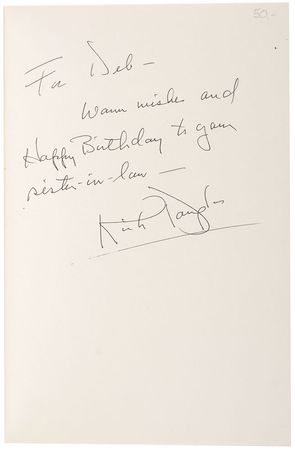 50,-
For Deb –
Warm wishes and
Happy Birthday to your
sister-in-law –
Kirk Douglas